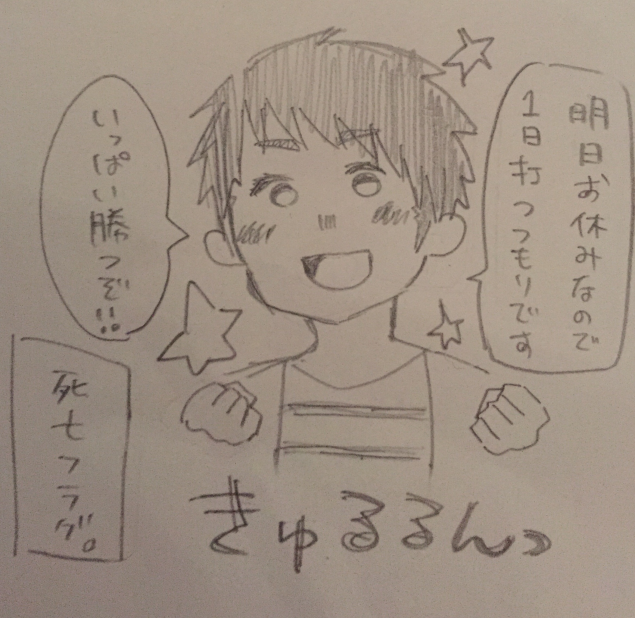 明日お休みなので
1日打つつもりです
いっぱい勝つぞ!!
死亡フラグ。
きゅるるんっ